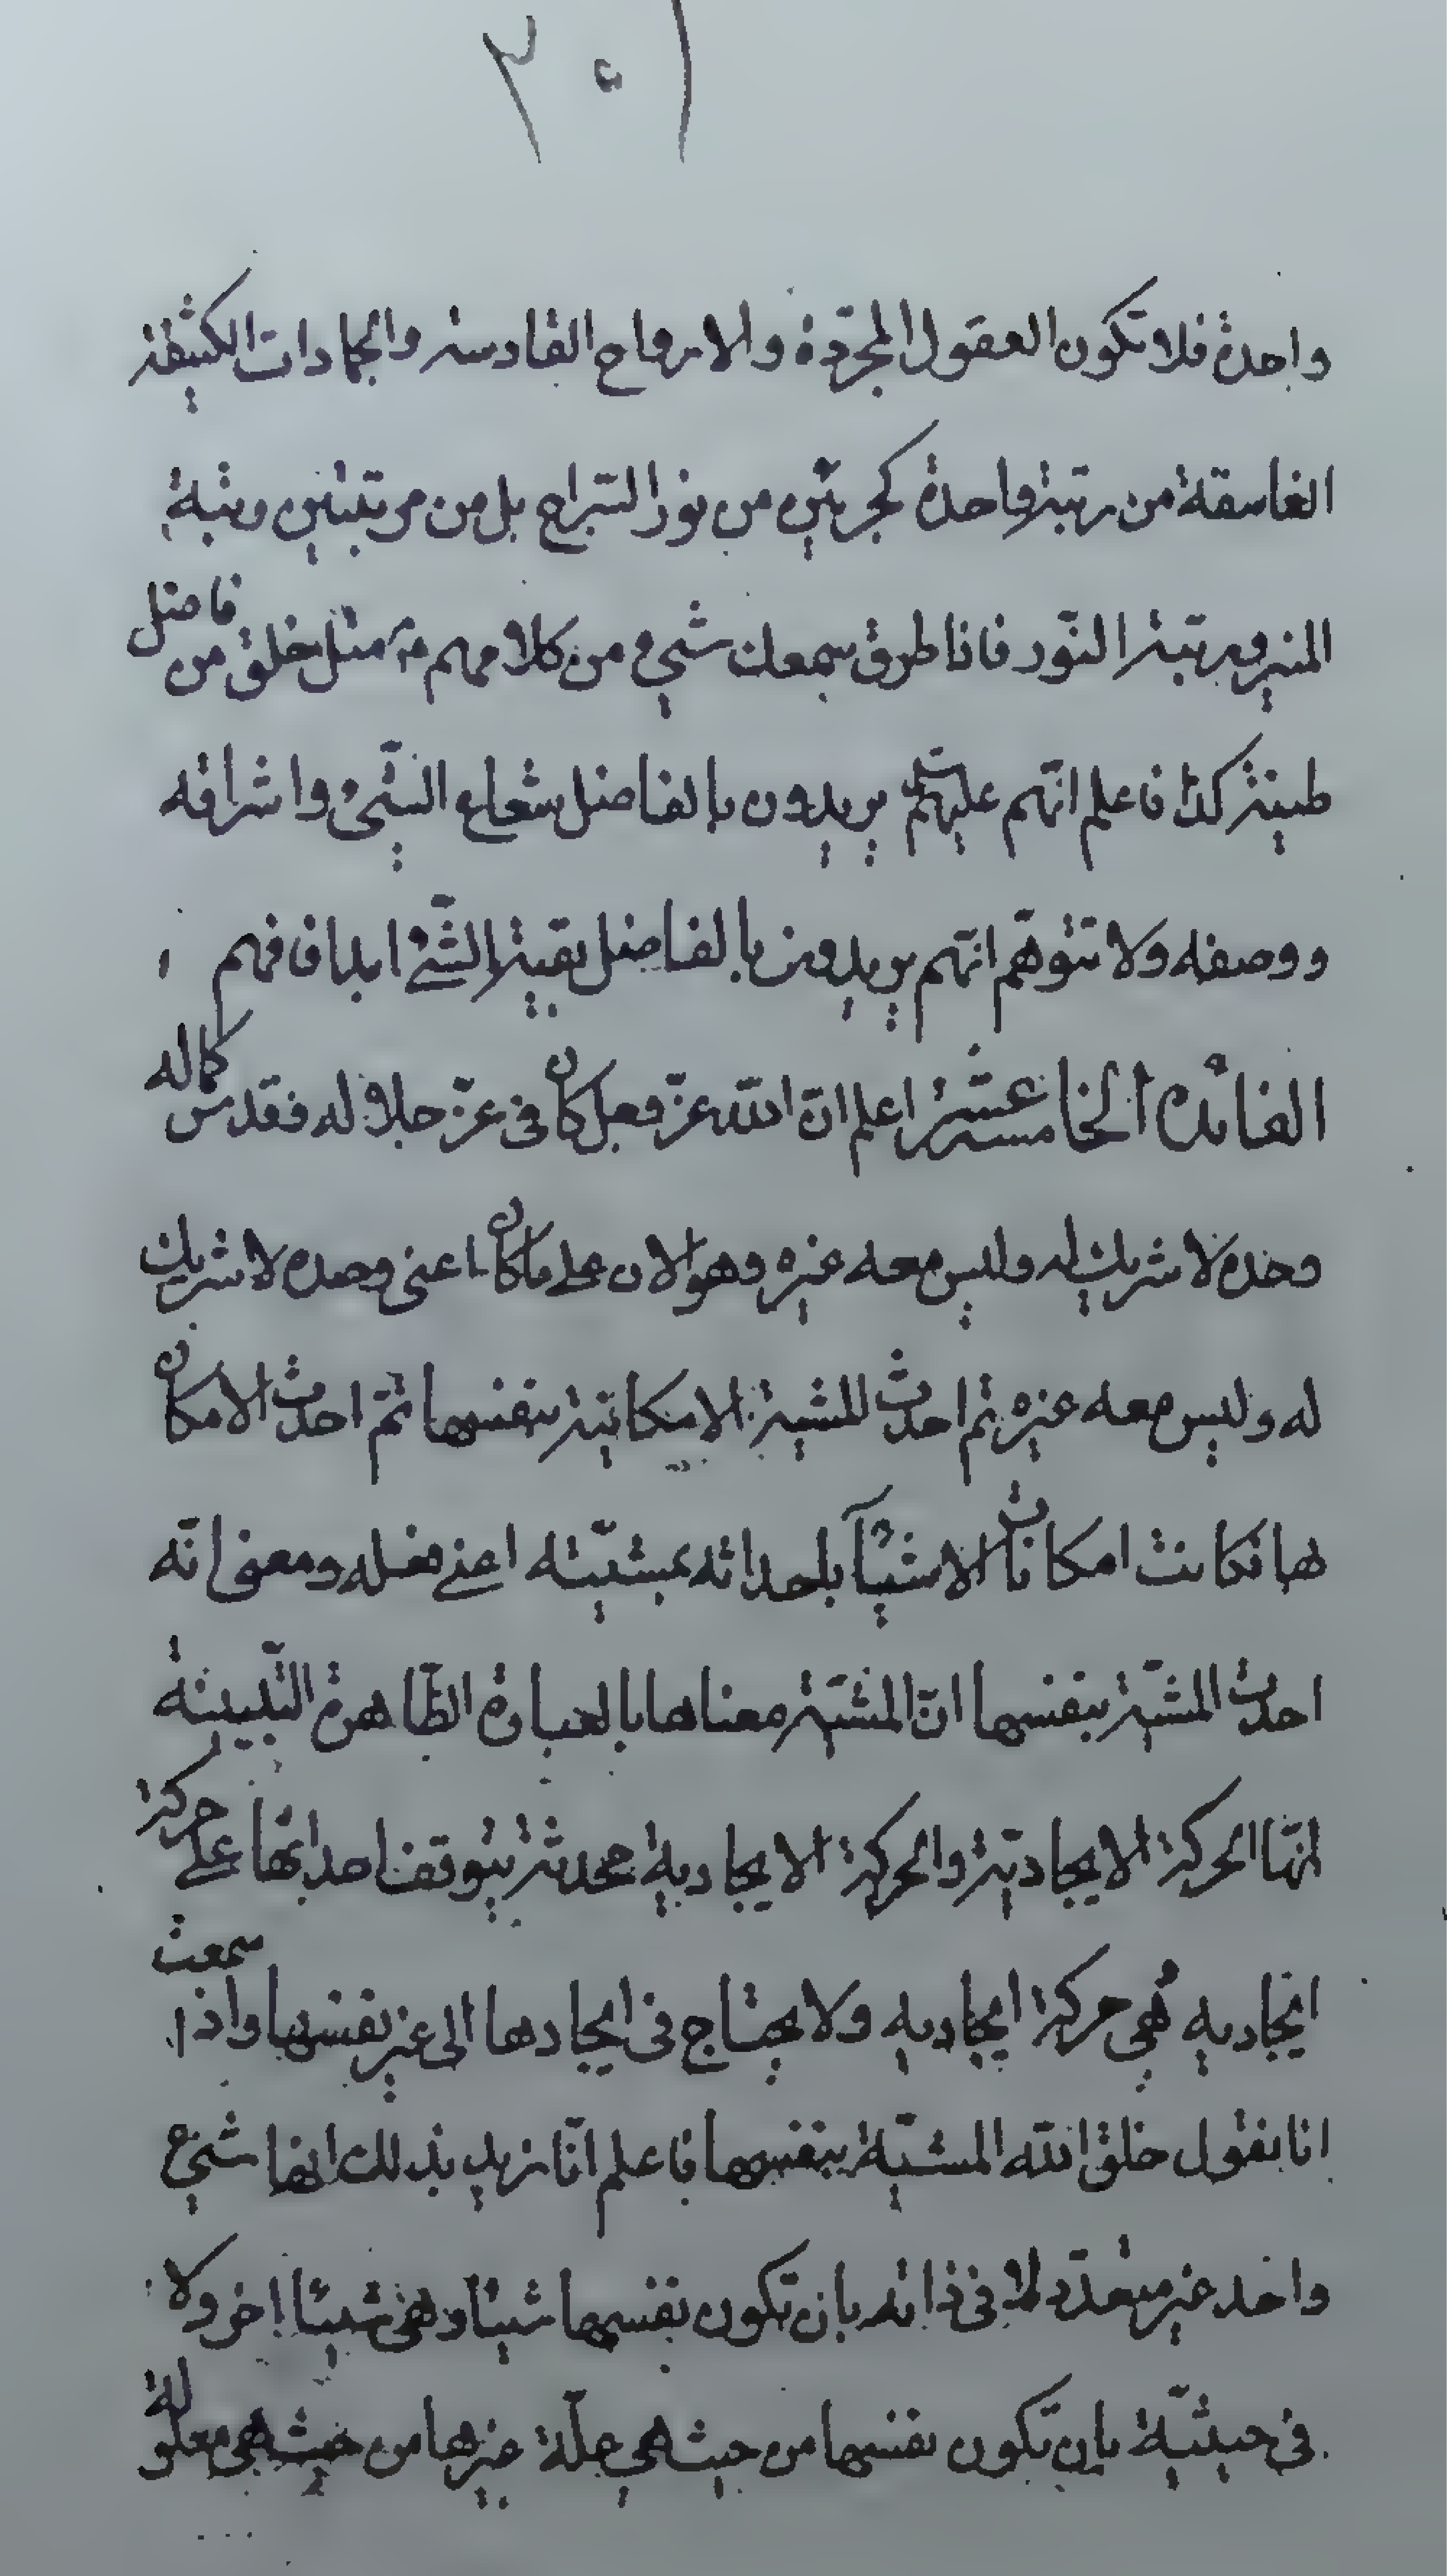 ٣٠١
واحدة فلا تكون العقول المجرّدة والارواح القادسة والجمادات الكثيفة
الغاسقة من رتبة واحدة كجزئين من نور السّراج بل من مرتبتين رتبة
المنير ورتبة النّور فاذا طرق سمعك شيء من كلامهم مثل خلق من فاضل
طينة كذا فاعلم انّهم عليهم يريدون بالفاضل شعاع الشّيء واشراقه
ووصفه ولا تتوهّم انّهم يريدون بالفاضل بقية الشّيء ابدا فافهم
الفائدة الخامسة عشر اعلم انّ الله عزّوجل كان في عزّ جلاله فقدس كماله
وحده لا شريك له وليس معه غيره وهو الان على ما كان اعنى وحده لا شريك
له وليس معه غيره ثم احدث المشية الامكانية بنفسها ثمّ احدث الامكان
بها فكانت امكانات الاشيآء باحداثه بمشيّته اعنى فعله ومعنى انّه
احدث المشيّة بنفسها انّ المشيّة معناها بالعبارة الظّاهرة التّبيينة
انّها الحركة الايجاديّة والحركة الايجادية محدثة يتوقف احداثها على حركة
ايجاديه فهي حركة ايجاديه ولا يحتاج في ايجادها الى غير نفسها واذا سمعت
انا نقول خلق الله المشيّة بنفسها فاعلم انّا نريد بذلك انها شيء
واحد غير متعدّد لا في ذاته بان تكون نفسها شيئا وهي شيئا اخر ولا
في حيثيّة بان تكون نفسها من حيث هي علّة غيرها من حيث هي معلولة